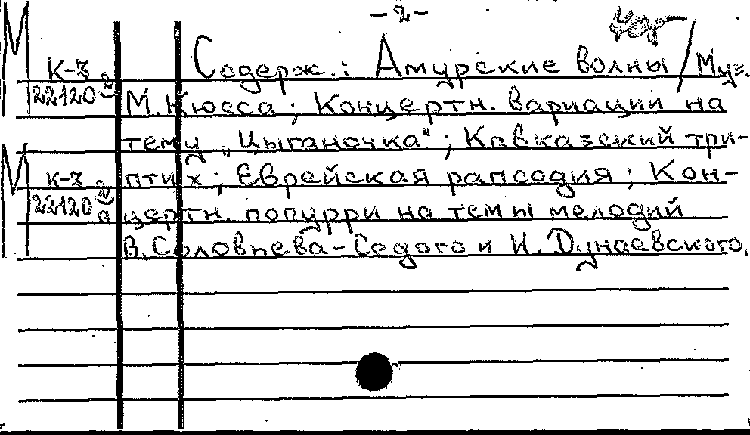 -2-
Содерж.: Амурские волны / Муз.
М. Кюсса; Концертн. вариации на
тему „Цыганочка"; Кавказский три-
птих; Еврейская рапсодия; Кон-
цертн. попурри на темы мелодий
В. Соловьева-Седого и И. Дунаевского.
М К-3
22120
М К-3
22120